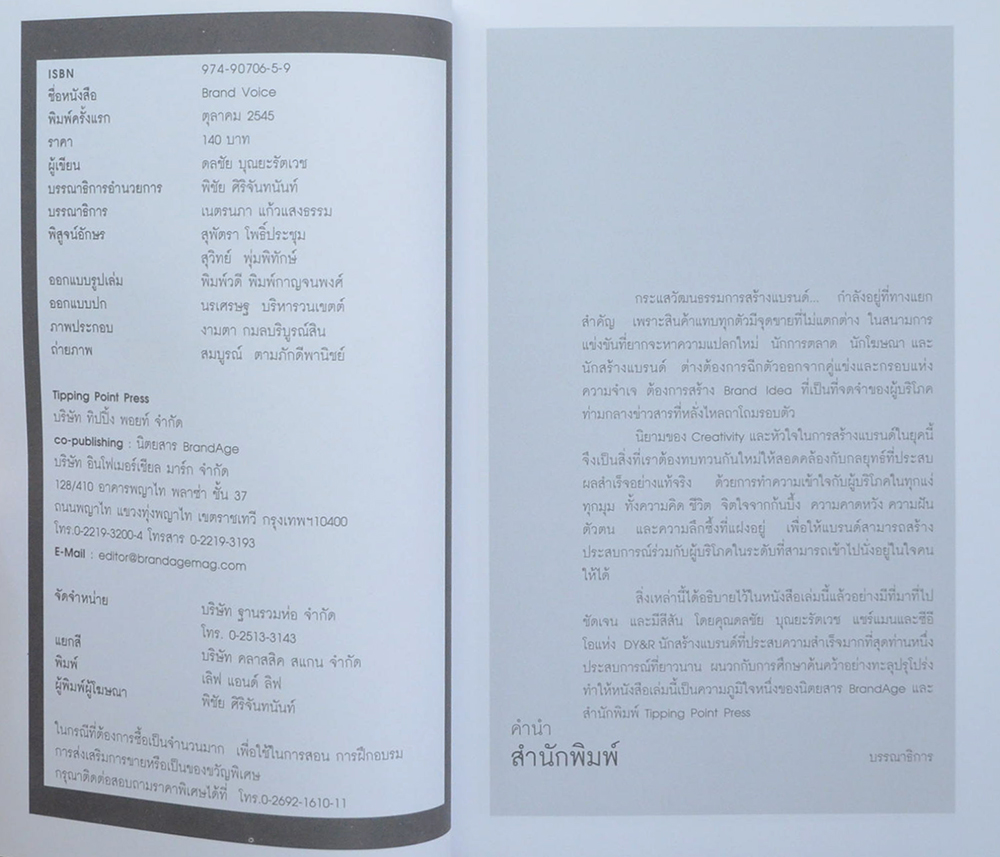 ISBN 974-90706-5-9
ชื่อหนังสือ Brand Voice
พิมพ์ครั้งแรก ตุลาคม 2545
ราคา 140 บาท
ผู้เขียน ดลชัย บุณยะรัตเวช
บรรณาธิการอำนวยการ พิชัย ศิริจันทนันท์
บรรณาธิการ เนตรนภา แก้วแสงธรรม
พิสูจน์อักษร สุพัตรา โพธิ์ประชุม
สุวิทย์ พุ่มพิทักษ์
ออกแบบรูปเล่ม พิมพ์วดี พิมพ์กาญจนพงศ์
ออกแบบปก นรเศรษฐ บริหารวนเขตต์
ภาพประกอบ งามตา กมลบริบูรณ์สิน
ถ่ายภาพ สมบูรณ์ ตามภักดีพานิชย์
Tipping Point Press
บริษัท ทิปปิ้ง พอยท์ จำกัด
co-publishing : นิตยสาร BrandAge
บริษัท อินโฟเมอร์เชียล มาร์ก จำกัด
128/410 อาคารพญาไท พลาซ่า ชั้น 37
ถนนพญาไท แขวงทุ่งพญาไท เขตราชเทวี กรุงเทพฯ10400
โทร.0-2219-3200-4 โทรสาร 0-2219-3193
E-Mail : editor@brandagemag.com
จัดจำหน่าย บริษัท ฐานรวมห่อ จำกัด
โทร. 0-2513-3143
แยกสี บริษัท คลาสสิค สแกน จำกัด
พิมพ์ เลิฟ แอนด์ ลิฟ
ผู้พิมพ์ผู้โฆษณา พิชัย ศิริจันทนันท์
ในกรณีที่ต้องการซื้อเป็นจำนวนมาก เพื่อใช้ในการสอน การฝึกอบรม
การส่งเสริมการขายหรือเป็นของขวัญพิเศษ
กรุณาติดต่อสอบถามราคาพิเศษได้ที่ โทร.0-2692-1610-11
กระแสวัฒนธรรมการสร้างแบรนด์... กำลังอยู่ที่ทางแยก
สำคัญ เพราะสินค้าแทบทุกตัวมีจุดขายที่ไม่แตกต่าง ในสนามการ
แข่งขันที่ยากจะหาความแปลกใหม่ นักการตลาด นักโฆษณา และ
นักสร้างแบรนด์ ต่างต้องการฉีกตัวออกจากคู่แข่งและกรอบแห่ง
ความจำเจ ต้องการสร้าง Brand Idea ที่เป็นที่จดจำของผู้บริโภค
ท่ามกลางข่าวสารที่หลั่งไหลถาโถมรอบตัว
นิยามของ Creativity และหัวใจในการสร้างแบรนด์ในยุคนี้
จึงเป็นสิ่งที่เราต้องทบทวนกันใหม่ให้สอดคล้องกับกลยุทธ์ที่ประสบ
ผลสำเร็จอย่างแท้จริง ด้วยการทำความเข้าใจกับผู้บริโภคในทุกแง่
ทุกมุม ทั้งความคิด ชีวิต จิตใจจากก้นบึ้ง ความคาดหวัง ความฝัน
ตัวตน และความลึกซึ้งที่แฝงอยู่ เพื่อให้แบรนด์สามารถสร้าง
ประสบการณ์ร่วมกับผู้บริโภคในระดับที่สามารถเข้าไปนั่งอยู่ในใจคน
ให้ได้
สิ่งเหล่านี้ได้อธิบายไว้ในหนังสือเล่มนี้แล้วอย่างมีที่มาที่ไป
ชัดเจน และมีสีสัน โดยคุณดลชัย บุณยะรัตเวช แชร์แมนและซีอี
โอแห่ง DY&R นักสร้างแบรนด์ที่ประสบความสำเร็จมากที่สุดท่านหนึ่ง
ประสบการณ์ที่ยาวนาน ผนวกกับการศึกษาค้นคว้าอย่างทะลุปรุโปร่ง
ทำให้หนังสือเล่มนี้เป็นความภูมิใจหนึ่งของนิตยสาร BrandAge และ
สำนักพิมพ์ Tipping Point Press
คำนำ
สำนักพิมพ์
บรรณาธิการ